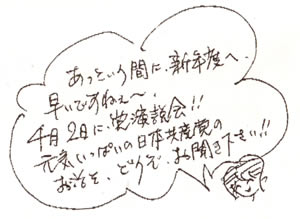 あっという間に、新年度へ。
早いですねぇ〜。
4月2日に、党演説会!!
元気いっぱいの日本共産党の
お話を、どうぞ、お聞き下さい!!